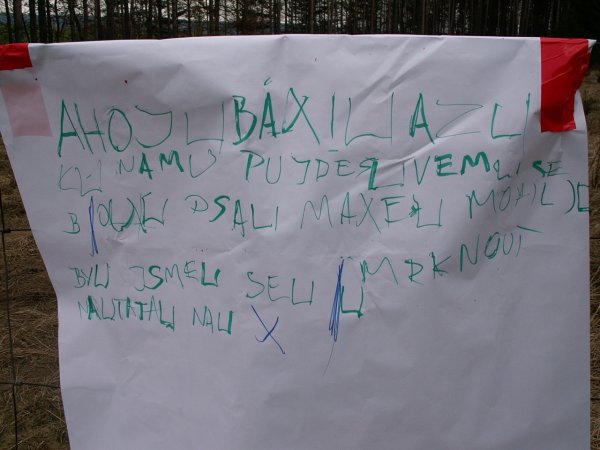 AHOJLI BÁXILI AZLI
KLI NAMLI PUJDEŠLIVEMLI SE
B PSALI MAXELI
BYLI JSMELI SELI MRKNOUT
NALITATALI NALI X